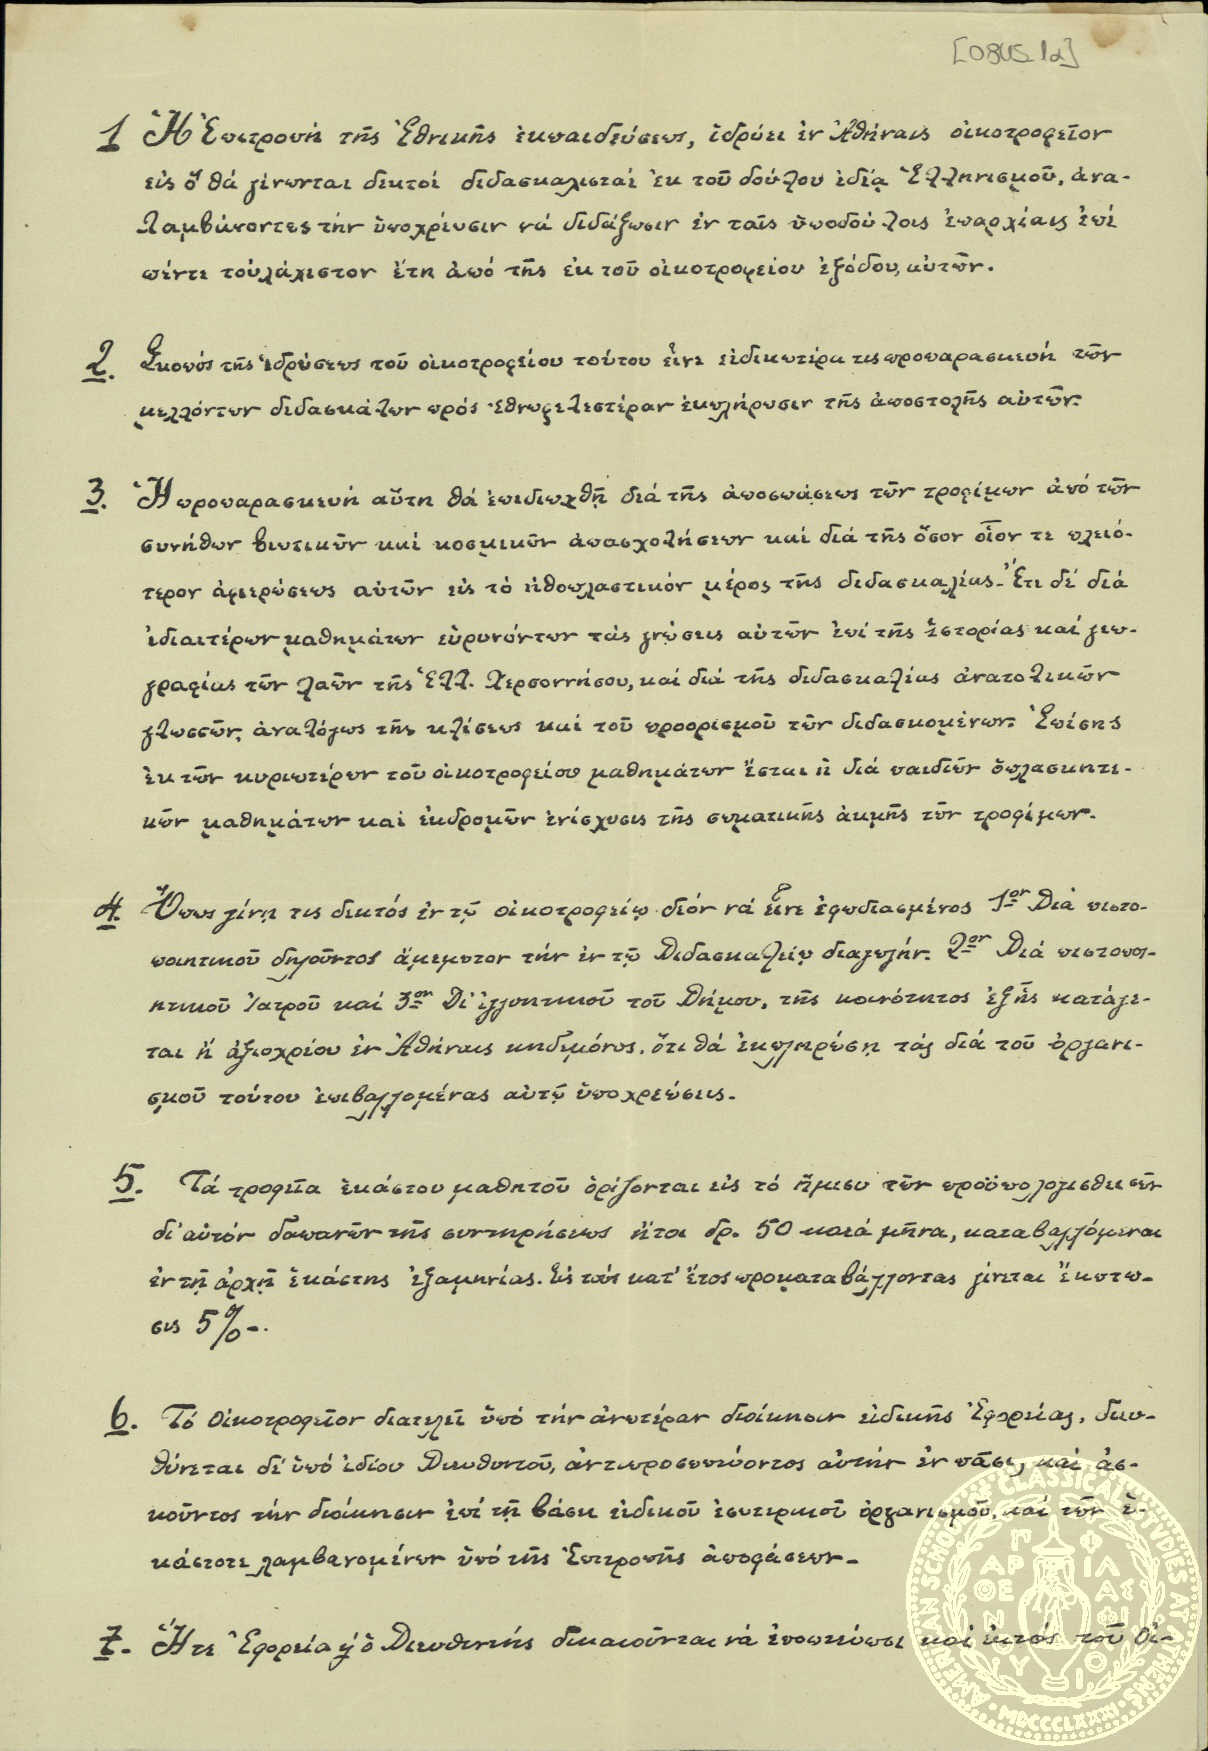 [08US_1α]
1 Ἡ Ἐπιτροπή τῆς Ἐθνικῆς ἐκπαιδεύσεως, ἱδρύει ἐν Ἀθήναις οἰκοτροφεῖον
εἰς ὅ θά γίνωνται δεκτοί διδασκαλισταί ἐκ τοῦ δούλου ἰδίᾳ Ἑλληνισμοῦ, ἀνα-
λαμβάνοντες τήν ὑποχρέωσιν νά διδάξωσιν ἐν ταῖς ὑποδούλοις ἐπαρχίαις ἐπί
πέντε τοὐλάχιστον ἔτη ἀπό τῆς ἐκ τοῦ οἰκοτροφείου ἐξόδου αὐτῶν.
2. Σκοπός τῆς ἱδρύσεως τοῦ οἰκοτροφείου τούτου εἶνε εἰδικωτέρα τις προπαρασκευή τῶν
μελλόντων διδασκάλων πρός ἐθνωφελεστέραν ἐκπλήρωσιν τῆς ἀποστολῆς αὐτῶν.
3. Ἡ προπαρασκευή αὕτη θά ἐπιδιωχθῇ διά τῆς ἀποσπάσεως τῶν τροφίμων ἀπό τῶν
συνήθων βιωτικῶν καί κοσμικῶν ἀπασχολήσεων καί διά τῆς ὅσον οἷον τε πλειό-
τερον ἀφιερώσεως αὐτῶν εἰς τό ἠθοπλαστικόν μέρος τῆς διδασκαλίας. Ἔτι δέ διά
ἰδιαιτέρων μαθημάτων εὐρυνόντων τάς γνώσεις αὐτῶν ἐπί τῆς ἱστορίας καί γεω-
γραφίας τῶν λαῶν τῆς Ἑλλ. Χερσοννήσου, καί διά τῆς διδασκαλίας ἀνατολικῶν
γλωσσῶν, ἀναλόγως τῆς κλίσεως καί τοῦ προορισμοῦ τῶν διδασκομένων. Ἐπίσης
ἐκ τῶν κυριωτέρων τοῦ οἰκοτροφείου μαθημάτων ἔσται ἡ διά παιδιῶν ὁπλασκητι-
κῶν μαθημάτων καί ἐκδρομῶν ἐνίσχυσις τῆς σωματικῆς ἀκμῆς τῶν τροφίμων.
4. Ὅπως γίνῃ τις δεκτός ἐν τῷ οἰκοτροφείῳ δέον νά εἶνε ἐφωδιασμένος 1ον Διά πιστο-
ποιητικοῦ δηλοῦντος ἄμεμπτον τήν ἐν τῷ Διδασκαλείῳ διαγωγήν. 2ον Διά πιστοποι-
ητικοῦ Ἰατροῦ καί 3ον Δι' ἐγγυητικοῦ τοῦ Δήμου, τῆς κοινότητος ἐξ ἧς κατάγε-
ται ἤ ἀξιοχρέου ἐν Ἀθήναις κηδεμόνος, ὅτι θά ἐκπληρώσῃ τάς διά τοῦ ὀργανι-
σμοῦ τούτου ἐπιβαλλομένας αὐτῷ ὑποχρεώσεις.
5. Τά τροφεῖα ἑκάστου μαθητοῦ ὁρίζονται εἰς τό ἥμισυ τῶν προϋπολογισθεισῶν
δι' αὐτόν δαπανῶν τῆς συντηρήσεως ἤτοι δρ. 50 κατά μῆνα, καταβαλλόμεναι
ἐν τῇ ἀρχῇ ἑκάστης ἑξαμηνίας. Εἰς τούς κατ' ἔτος προκαταβάλλοντας γίνεται ἔκπτω-
σις 5%.
6. Τό Οἰκοτροφεῖον διατελεῖ ὑπό τήν ἀνωτέραν διοίκησιν εἰδικῆς Ἐφορείας, διευ-
θύνεται δέ ὑπό ἰδίου Διευθυντοῦ, ἀντιπροσωπεύοντος αὐτήν ἐν πᾶσι, καί ἀσ-
κοῦντος τήν διοίκησιν ἐπί τῇ βάσει εἰδικοῦ ἐσωτερικοῦ ὀργανισμοῦ, καί τῶν ἑ-
κάστοτε λαμβανομένων ὑπό τῆς Ἐπιτροπῆς ἀποφάσεων.
7. Ἥ τε Ἐφορεία ἤ ὁ Διευθυντής δικαιοῦνται νά ἐποπτεύωσι καί ἐκτός τοῦ Οἰ-
AMERICAN SCHOOL OF CLASSICAL STUDIES AT ATHENS
MDCCCLXXXI
ΠΑΡΘΕΝΟΥ ΦΙΛΑΣ ΦΙΛΙΟΥ